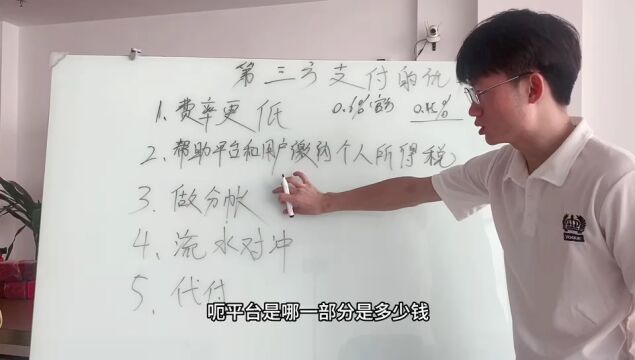 第三方支付的优
1. 费率更低 0.6%官方
2. 帮助平台和用户缴纳个人所得税
3. 做分帐
4. 流水对冲
5. 代付
呃平台是哪一部分是多少钱